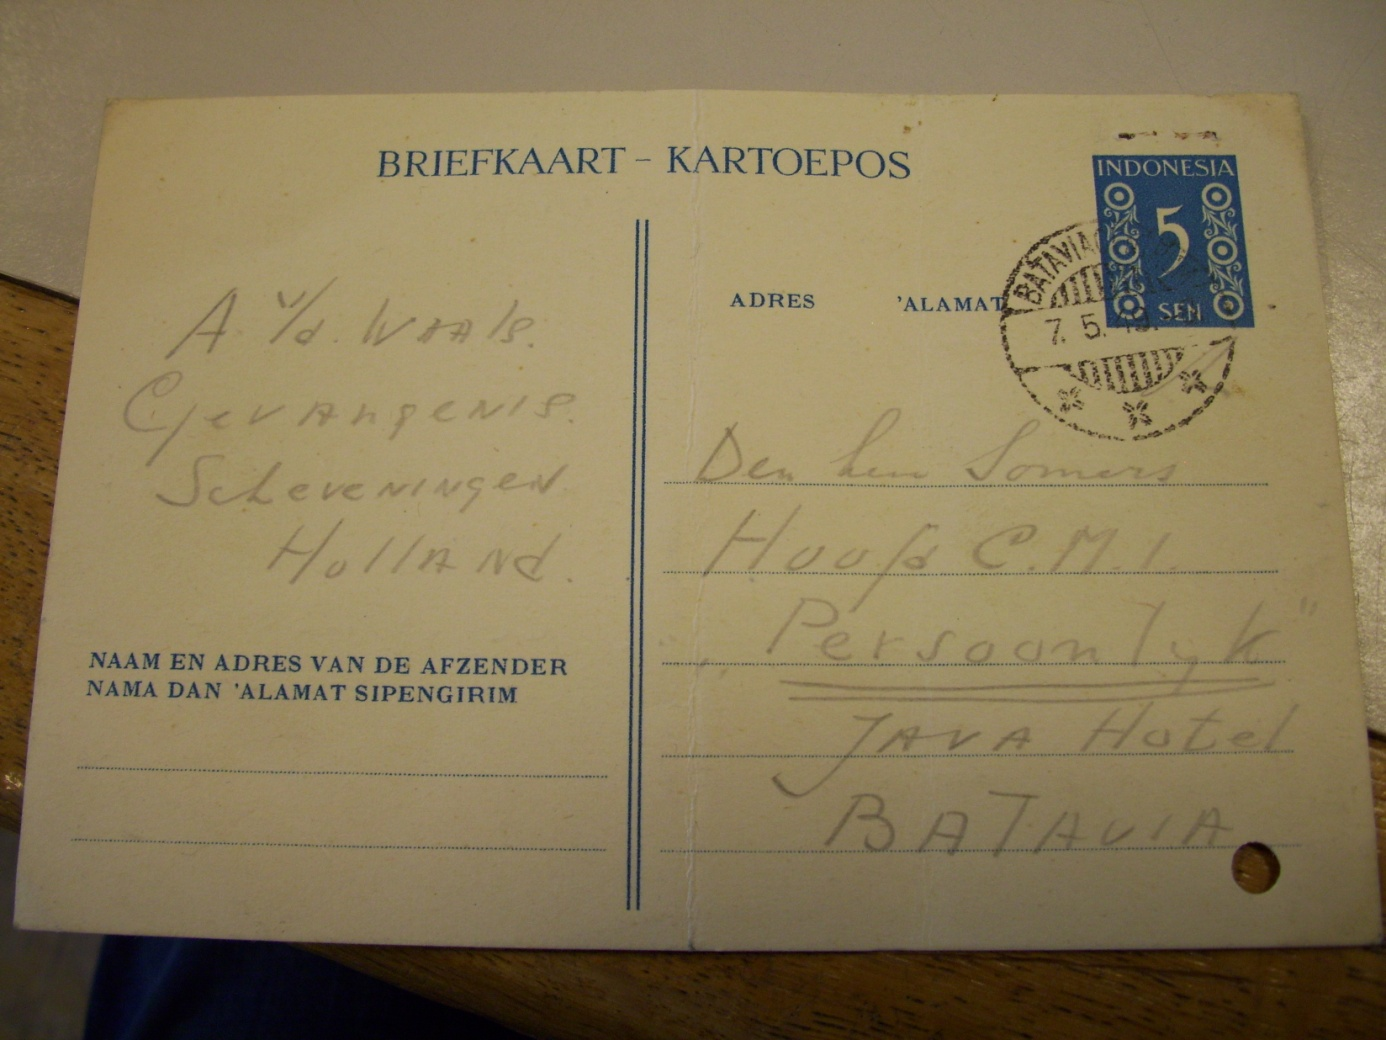 BRIEFKAART - KARTOEPOS
INDONESIA
5
SEN
BATAVIAC
7. 5. 19.
ADRES 'ALAMAT
A v/d. WAAls.
GevAngenis.
Scheveningen
HollANd.
NAAM EN ADRES VAN DE AFZENDER
NAMA DAN 'ALAMAT SIPENGIRIM
Den heer Somers
Hoofd C.M.I.
"Persoonlyk"
JAVA Hotel
BATAVIA